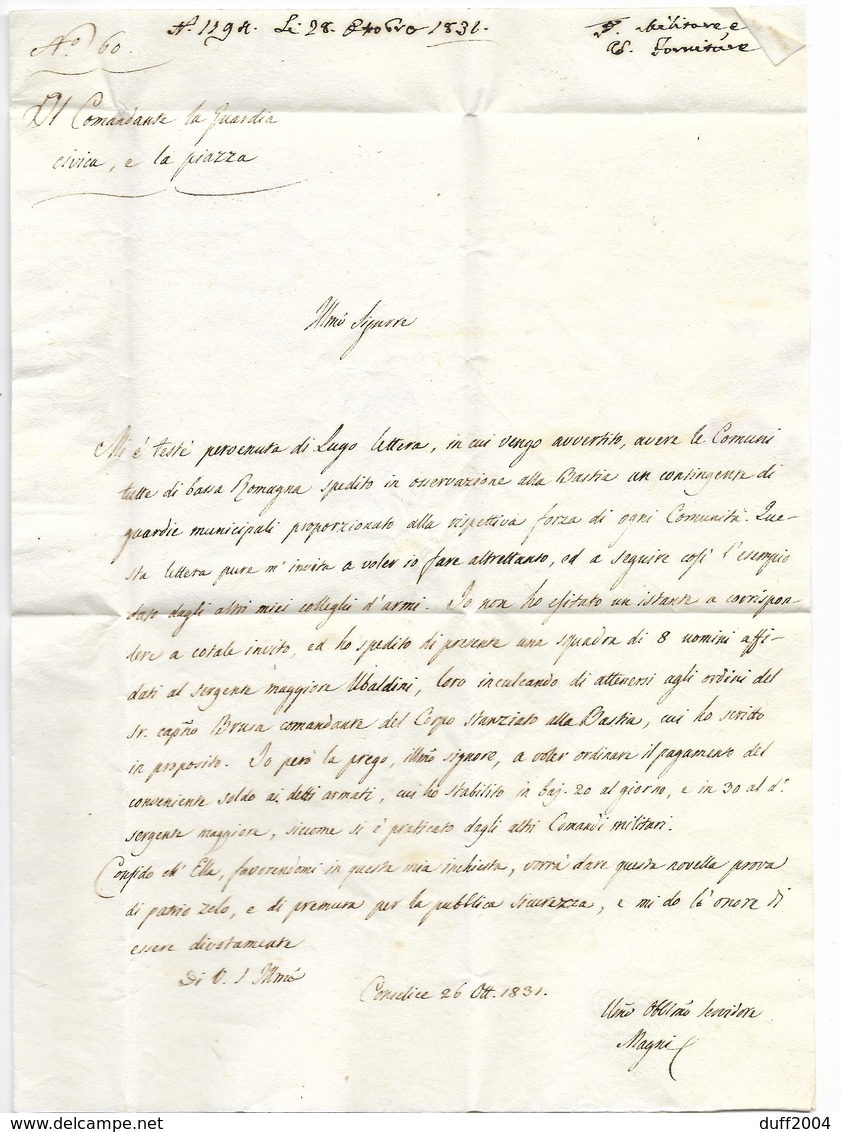 N. 1194. Li 28. Ottobre 1831.
T. Militare e
R. Forniture
No. 60.
Il Comandante la Guardia
civica, e la piazza
Illmo Signore
Mi è testè pervenuta di Lugo lettera, in cui vengo avvertito, avere le Comuni
tutte di bassa Romagna spedito in osservazione alla Bastia un contingente di
guardie municipali proporzionato alla rispettiva forza di ogni Comunità. Que-
sta lettera pure m'invita a voler io fare altrettanto, ed a seguire così l'esempio
dato dagli altri miei colleghi d'armi. Io non ho esitato un istante a corrispon-
dere a cotale invito, ed ho spedito di presente una squadra di 8 uomini affi-
dati al sergente maggiore Ubaldini, loro inculcando di attenersi agli ordini del
sr. capño Brusa comandante del Corpo stanziato alla Bastia, cui ho scritto
in proposito. Io però la prego, illmo signore, a voler ordinare il pagamento del
conveniente soldo ai detti armati, cui ho stabilito in baj. 20 al giorno, e in 30 al do.
sergente maggiore, siccome si è praticato dagli altri Comandi militari.
Confido ch'Ella, favorendomi in questa mia inchiesta, vorrà dare questa novella prova
di patrio zelo, e di premura per la pubblica sicurezza, e mi do l'onore di
essere divotamente
Di V. S. Illma
Conselice 26 Ott. 1831.
Umo Obblmo Servidore
Magni
duff2004